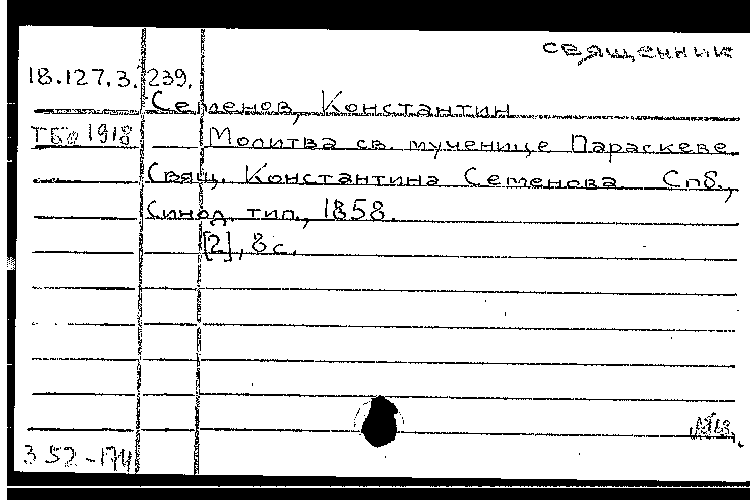 священник
18.127.3.239.
Семенов, Константин
1918 Молитва св. мученице Параскеве
Свящ. Константина Семенова. Спб.,
Синод. тип., 1858.
[2], 8 с.
3 52-174